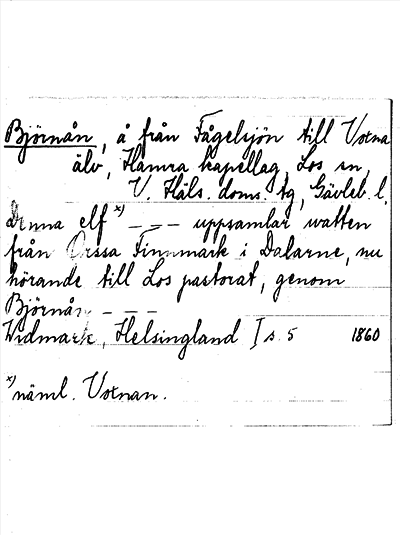 Björnån, å från Fågelsjön till Votna
älv, Hamra kapellag, Los sn,
V. Häls. doms. tg, Gävleb. l.
denna elf x) – – – uppsamlar watten
från Orssa Finnmark i Dalarne, nu
hörande till Los pastorat, genom
Björnån – – –
Widmark, Helsingland I s. 5 1860
x) näml. Votnan.